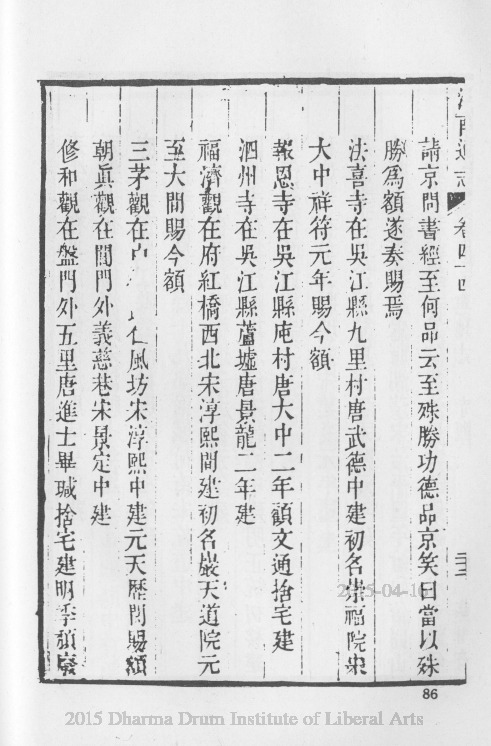 江南通志
卷四十四
請京問書經至何品云至殊勝功德品京笑曰當以殊
勝為額遂奏賜焉
法喜寺在吳江縣九里村唐武德中建初名崇福院宋
大中祥符元年賜今額
報恩寺在吳江縣庉村唐大中二年顧文通捨宅建
泗州寺在吳江縣蘆墟唐景龍二年建
福濟觀在府紅橋西北宋淳熙間建初名巖天道院元
至大間賜今額
三茅觀在 仁風坊宋淳熙中建元天歷間賜額
朝眞觀在閶門外義慈巷宋景定中建
修和觀在盤門外五里唐進士畢瑊捨宅建明季頹廢
2015-04-16
86
2015 Dharma Drum Institute of Liberal Arts